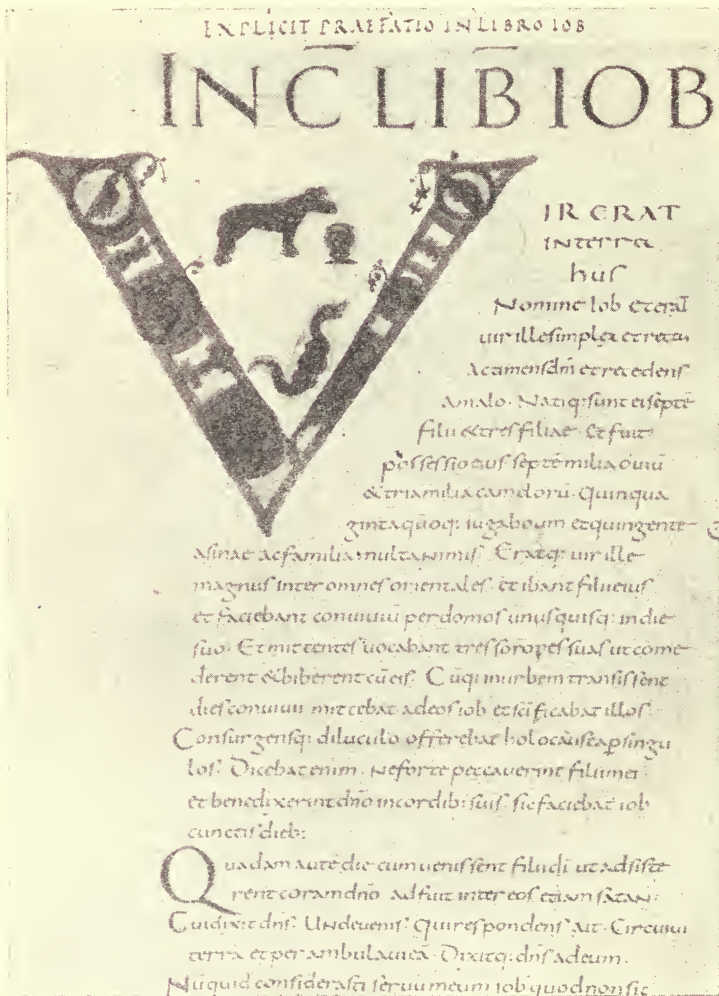 EXPLICIT PRAEFATIO IN LIBRO IOB
INC̄ LIB̄ IOB
IR ERAT
IN terra
hus
Nomine Iob et erat
uir ille simplex et rectus
ac timens dm̄ et recedens
a malo. Natiq; sunt ei septē
filii & tres filiae. Et fuit
possessio eius septē milia ouiū
& tria milia camelorū. Quinqua
ginta quoq; iuga boum et quingente
asinae ac familia multa nimis. Eratq; uir ille
magnus inter omnes orientales. et ibant filii eius
et faciebant conuiuiū per domos unusquisq; in die
suo. Et mittentes uocabant tres sorores suas ut come
derent & biberent cū eis. Cūq; in urbem transissent
dies conuiuii mittebat ad eos iob et sc̄ificabat illos.
Consurgensq; diluculo offerebat holocausta p singu
los. Dicebat enim. Ne forte peccauerint filii mei
et benedixerint dn̄o in cordib; suis. sic faciebat iob
cunctis dieb;
Quadam autē die cum uenissent filii dī ut adsiste
rent coram dn̄o adfuit inter eos etiam satan.
Cui dixit dn̄s. Unde uenis. Qui respondens ait. Circuiui
terrā et perambulaui eā. Dixitq; dn̄s ad eum.
Nūquid considerasti seruum meum iob quod non sit